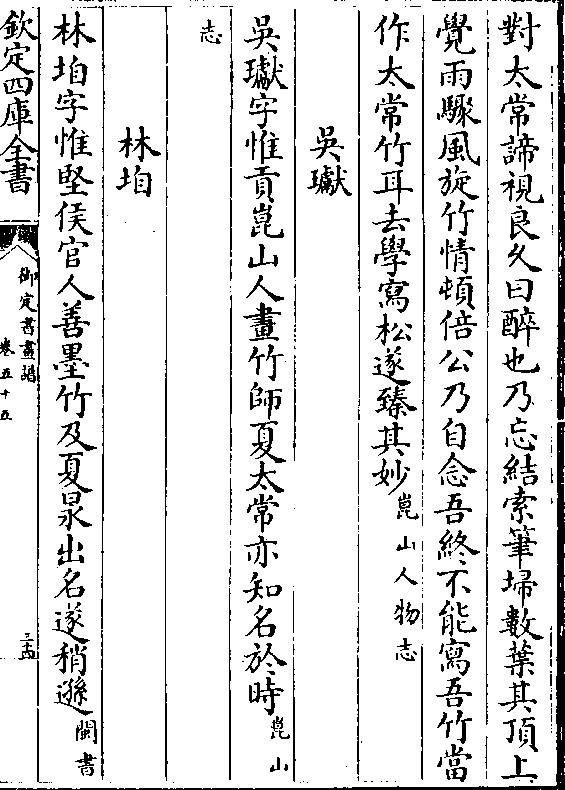 對太常諦視良久曰醉也乃忘結索筆埽數葉其頂上
覺雨驟風旋竹情頓倍公乃自念吾終不能寫吾竹當
作太常竹耳去學寫松遂臻其妙崑山人物志
吳瓛
吳瓛字惟貢崑山人畫竹師夏太常亦知名於時崑山
志
林垍
林垍字惟堅侯官人善墨竹及夏㫤出名遂稍遜閩書
欽定四庫全書
御定書畫譜
卷五十五
三十四